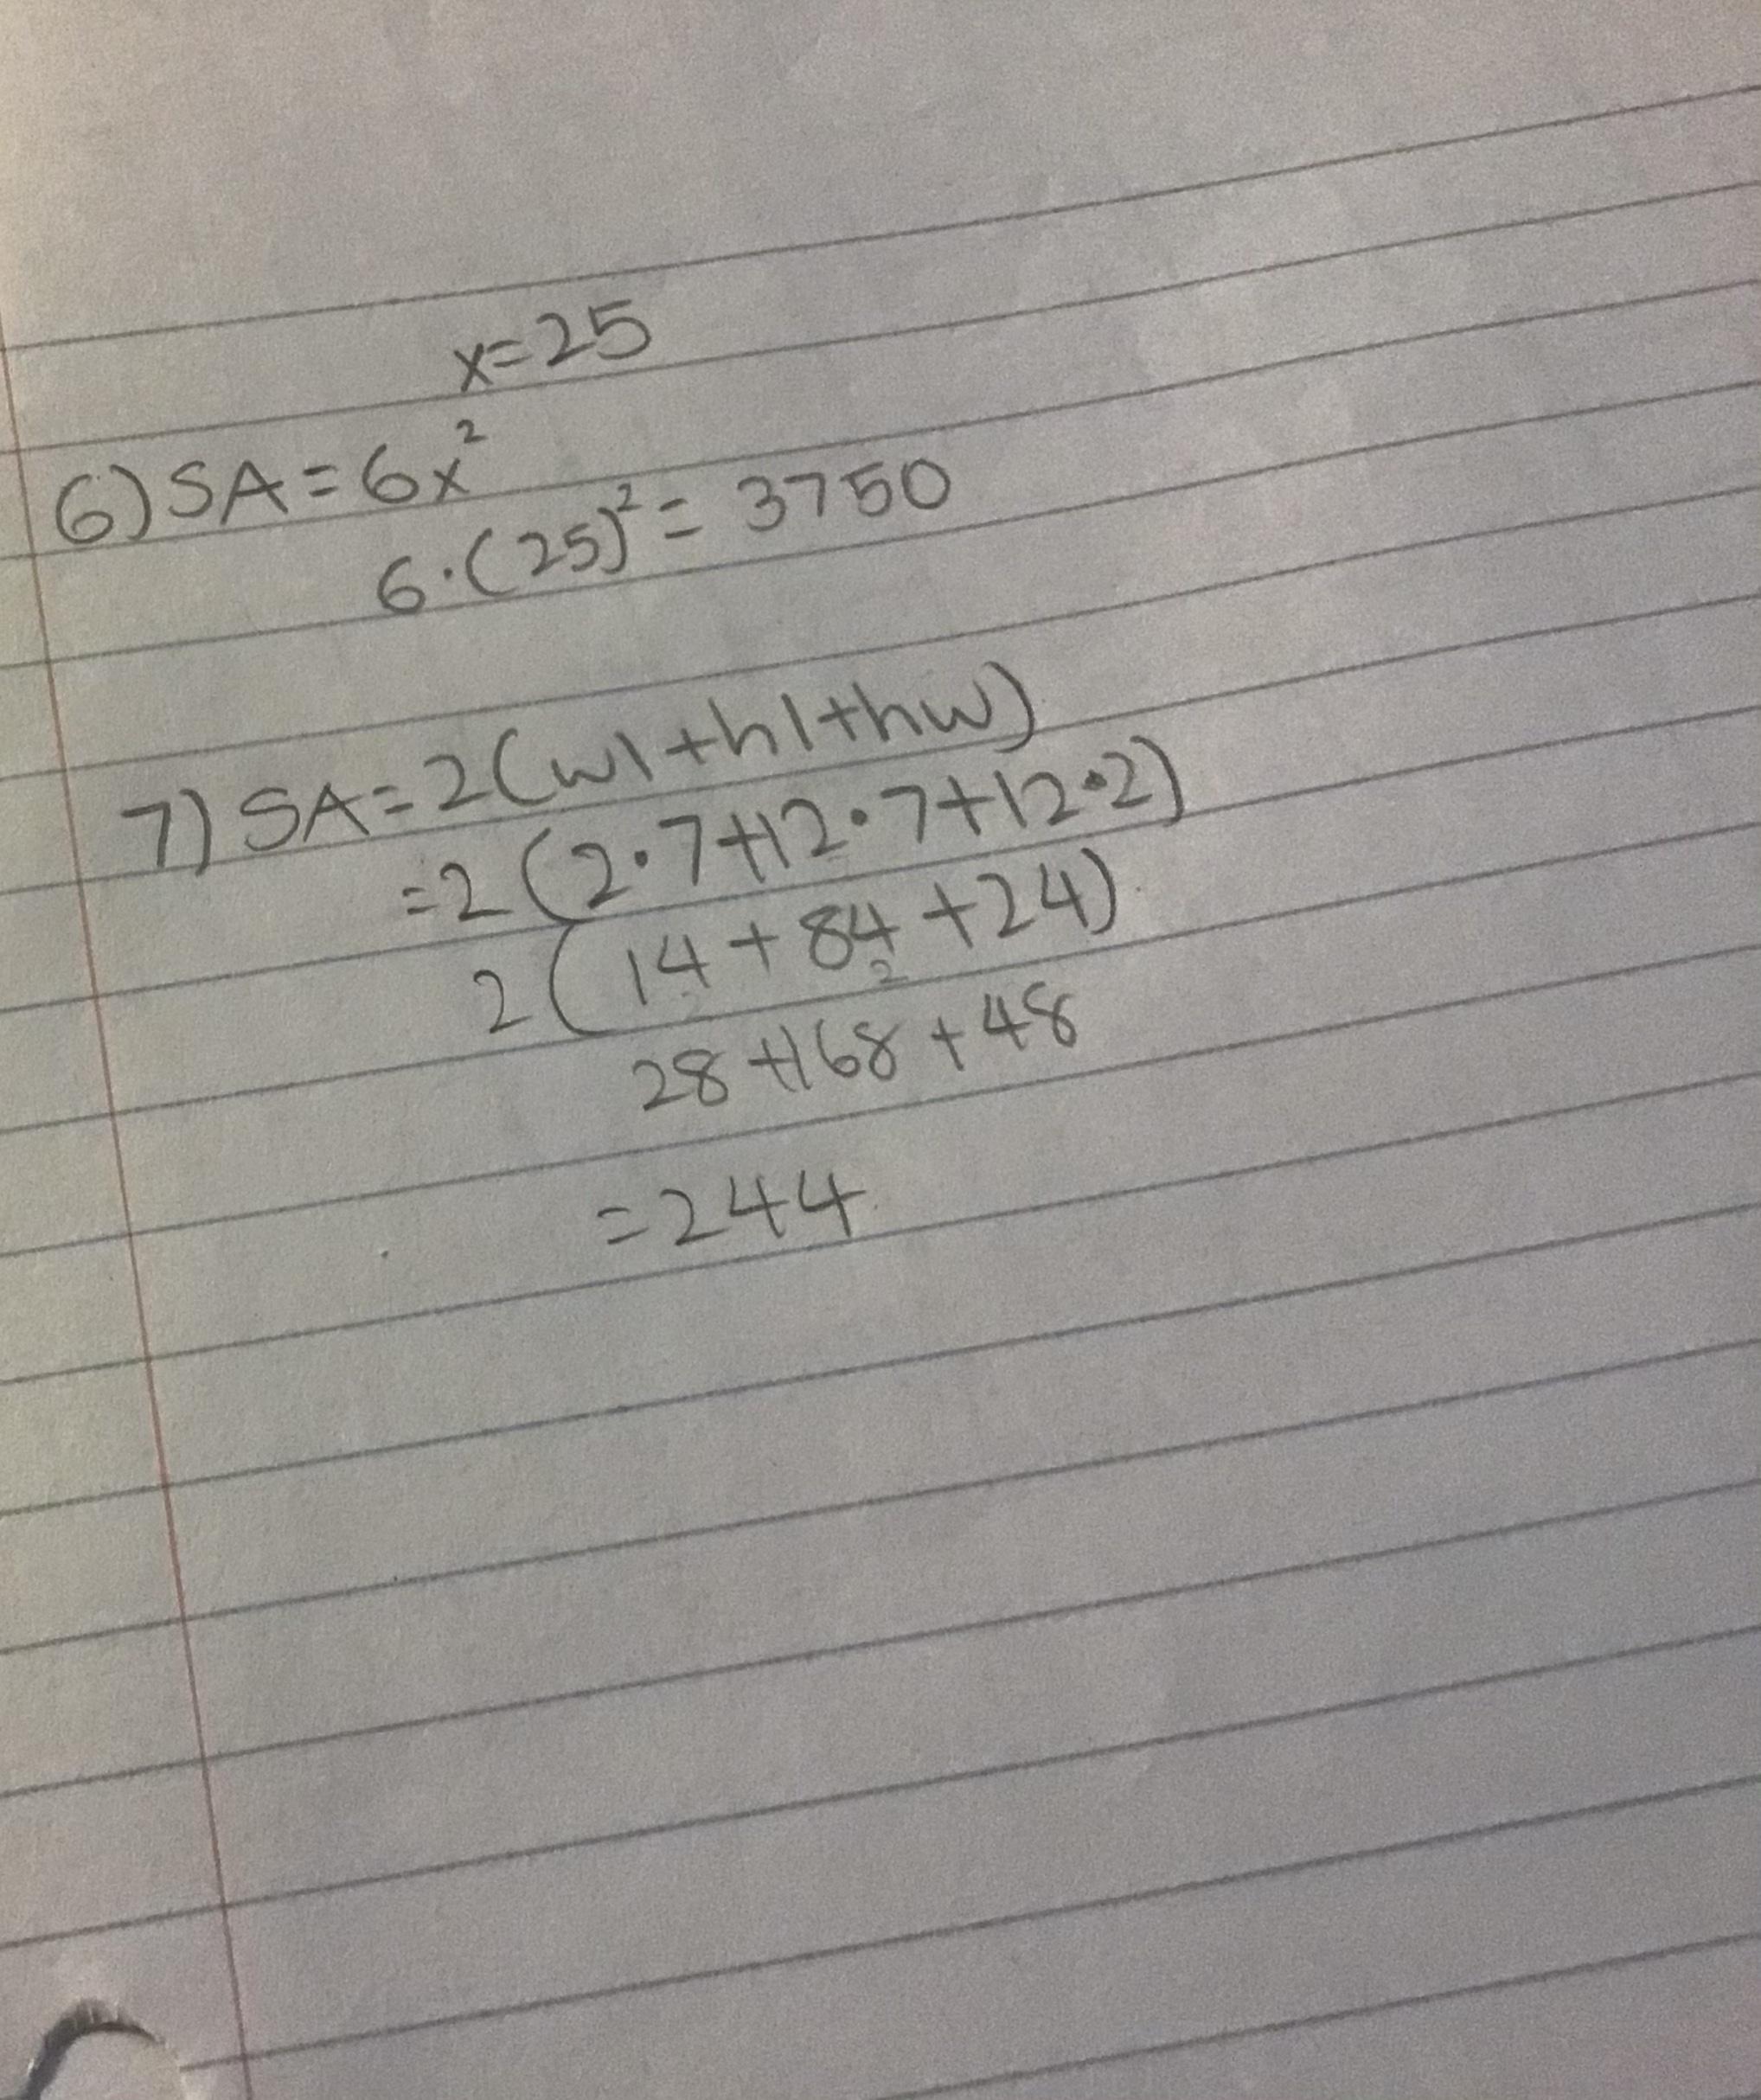 x=25
6) SA=6x²
6·(25)²= 3750
7) SA=2(wl+hl+hw)
=2(2·7+12·7+12·2)
2(14+84+24)
28+168+48
=244